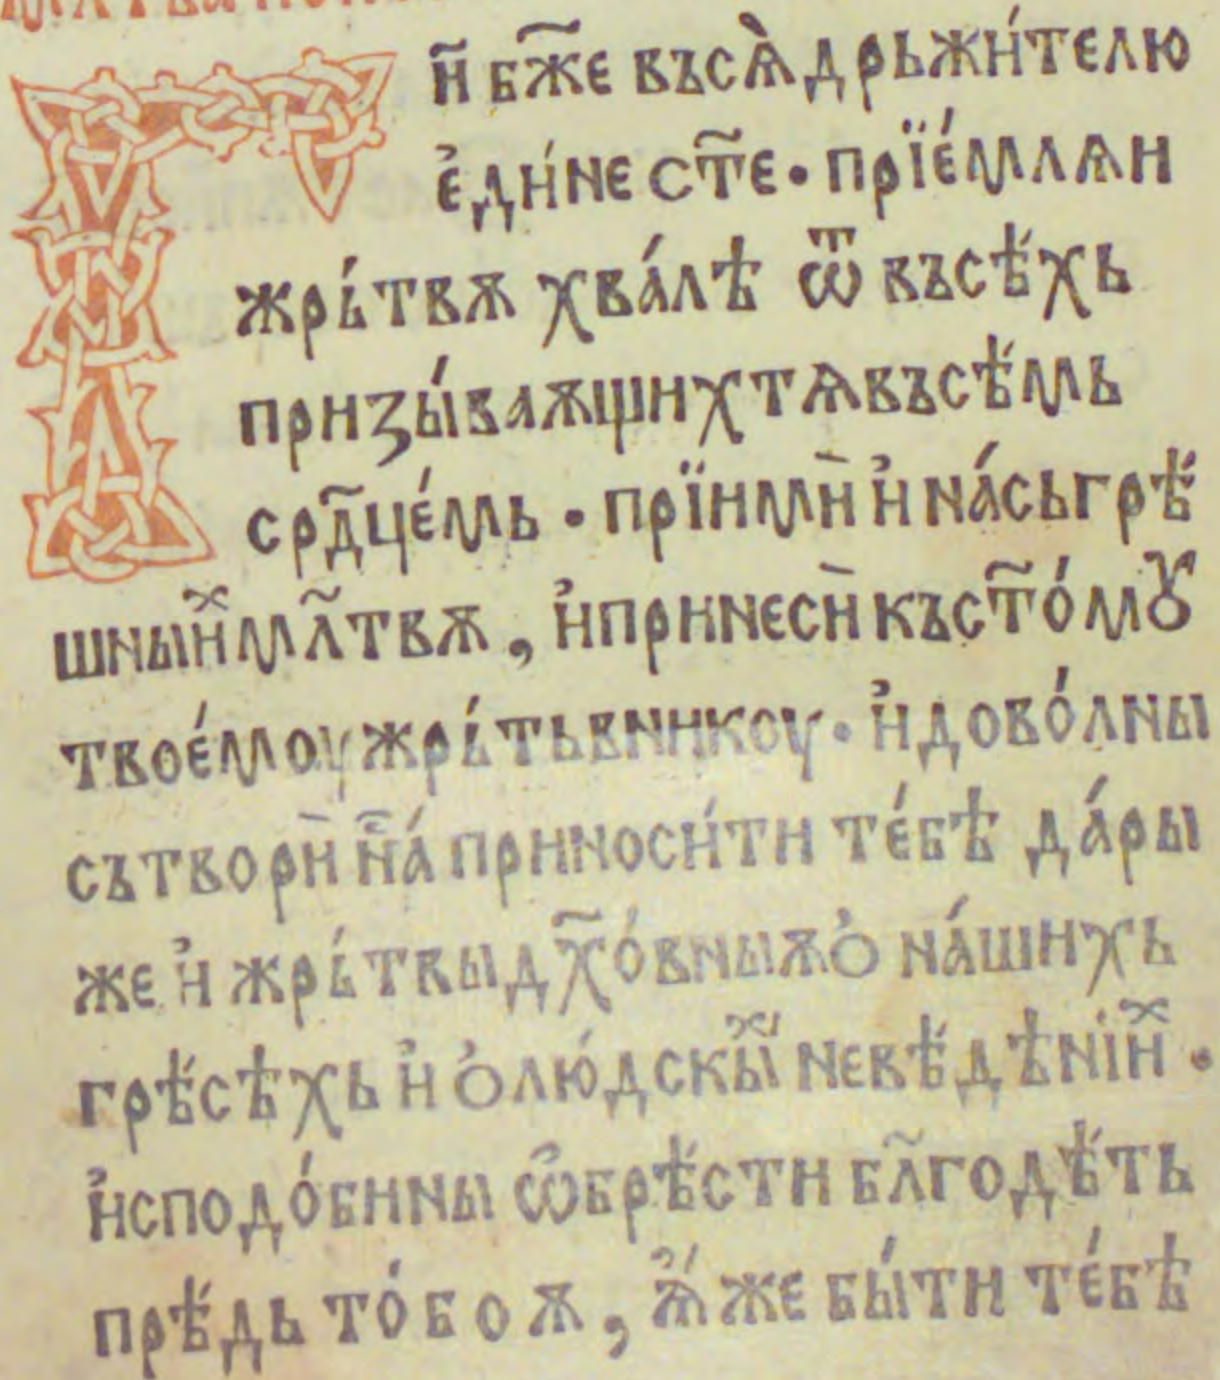 Гн҃ бж҃е въсѧ̀дрьжи́телю
є҆ди́не ст҃е · прїе́млѧи
жрь́твѫ хва́лѣ ѿ въсѣ́хь
призы́ваѫщихтѧвъсѣ́мь
срд҃це́мь · прїимѝ и҆на́сьгрѣ́
шныⷯимл҃твѫ , и҆принесѝкъст҃о́мꙋ
твоє́моужрь́тьвникоу · и҆дово́лны
сътворѝ н҃а́ приноси́ти те́бѣ да́ры
же и҆ жрь́твыдх҃о́вныѫѻ҆ на́шихь
грѣ́сѣхь и҆ ѻ҆лю́дскыⷯ невѣ́дѣнїиⷯ ·
и҆сподо́бины ѡ҆брѣ́сти бл҃годѣ́ть
прѣ́дь то́боѫ , ѫ҆́же бы́ти те́бѣ